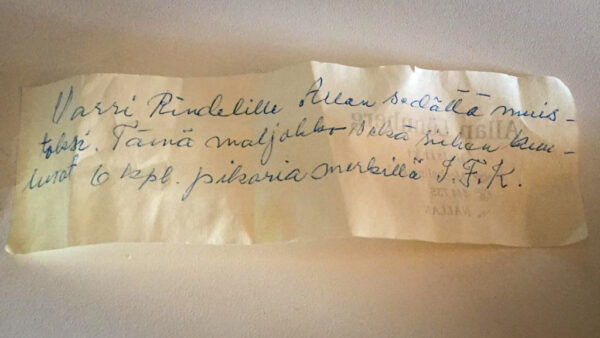 Varri Rindelille Allan sedältä muis-
toksi. Tämä maljakko sekä siihen kuu-
luvat 6 kpl. pikaria merkillä I.F.K.
Allan